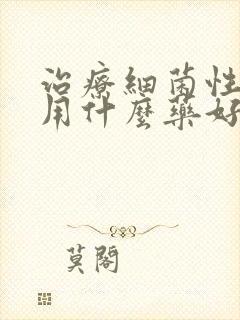 治療細菌性
用什麼藥好
莫閣